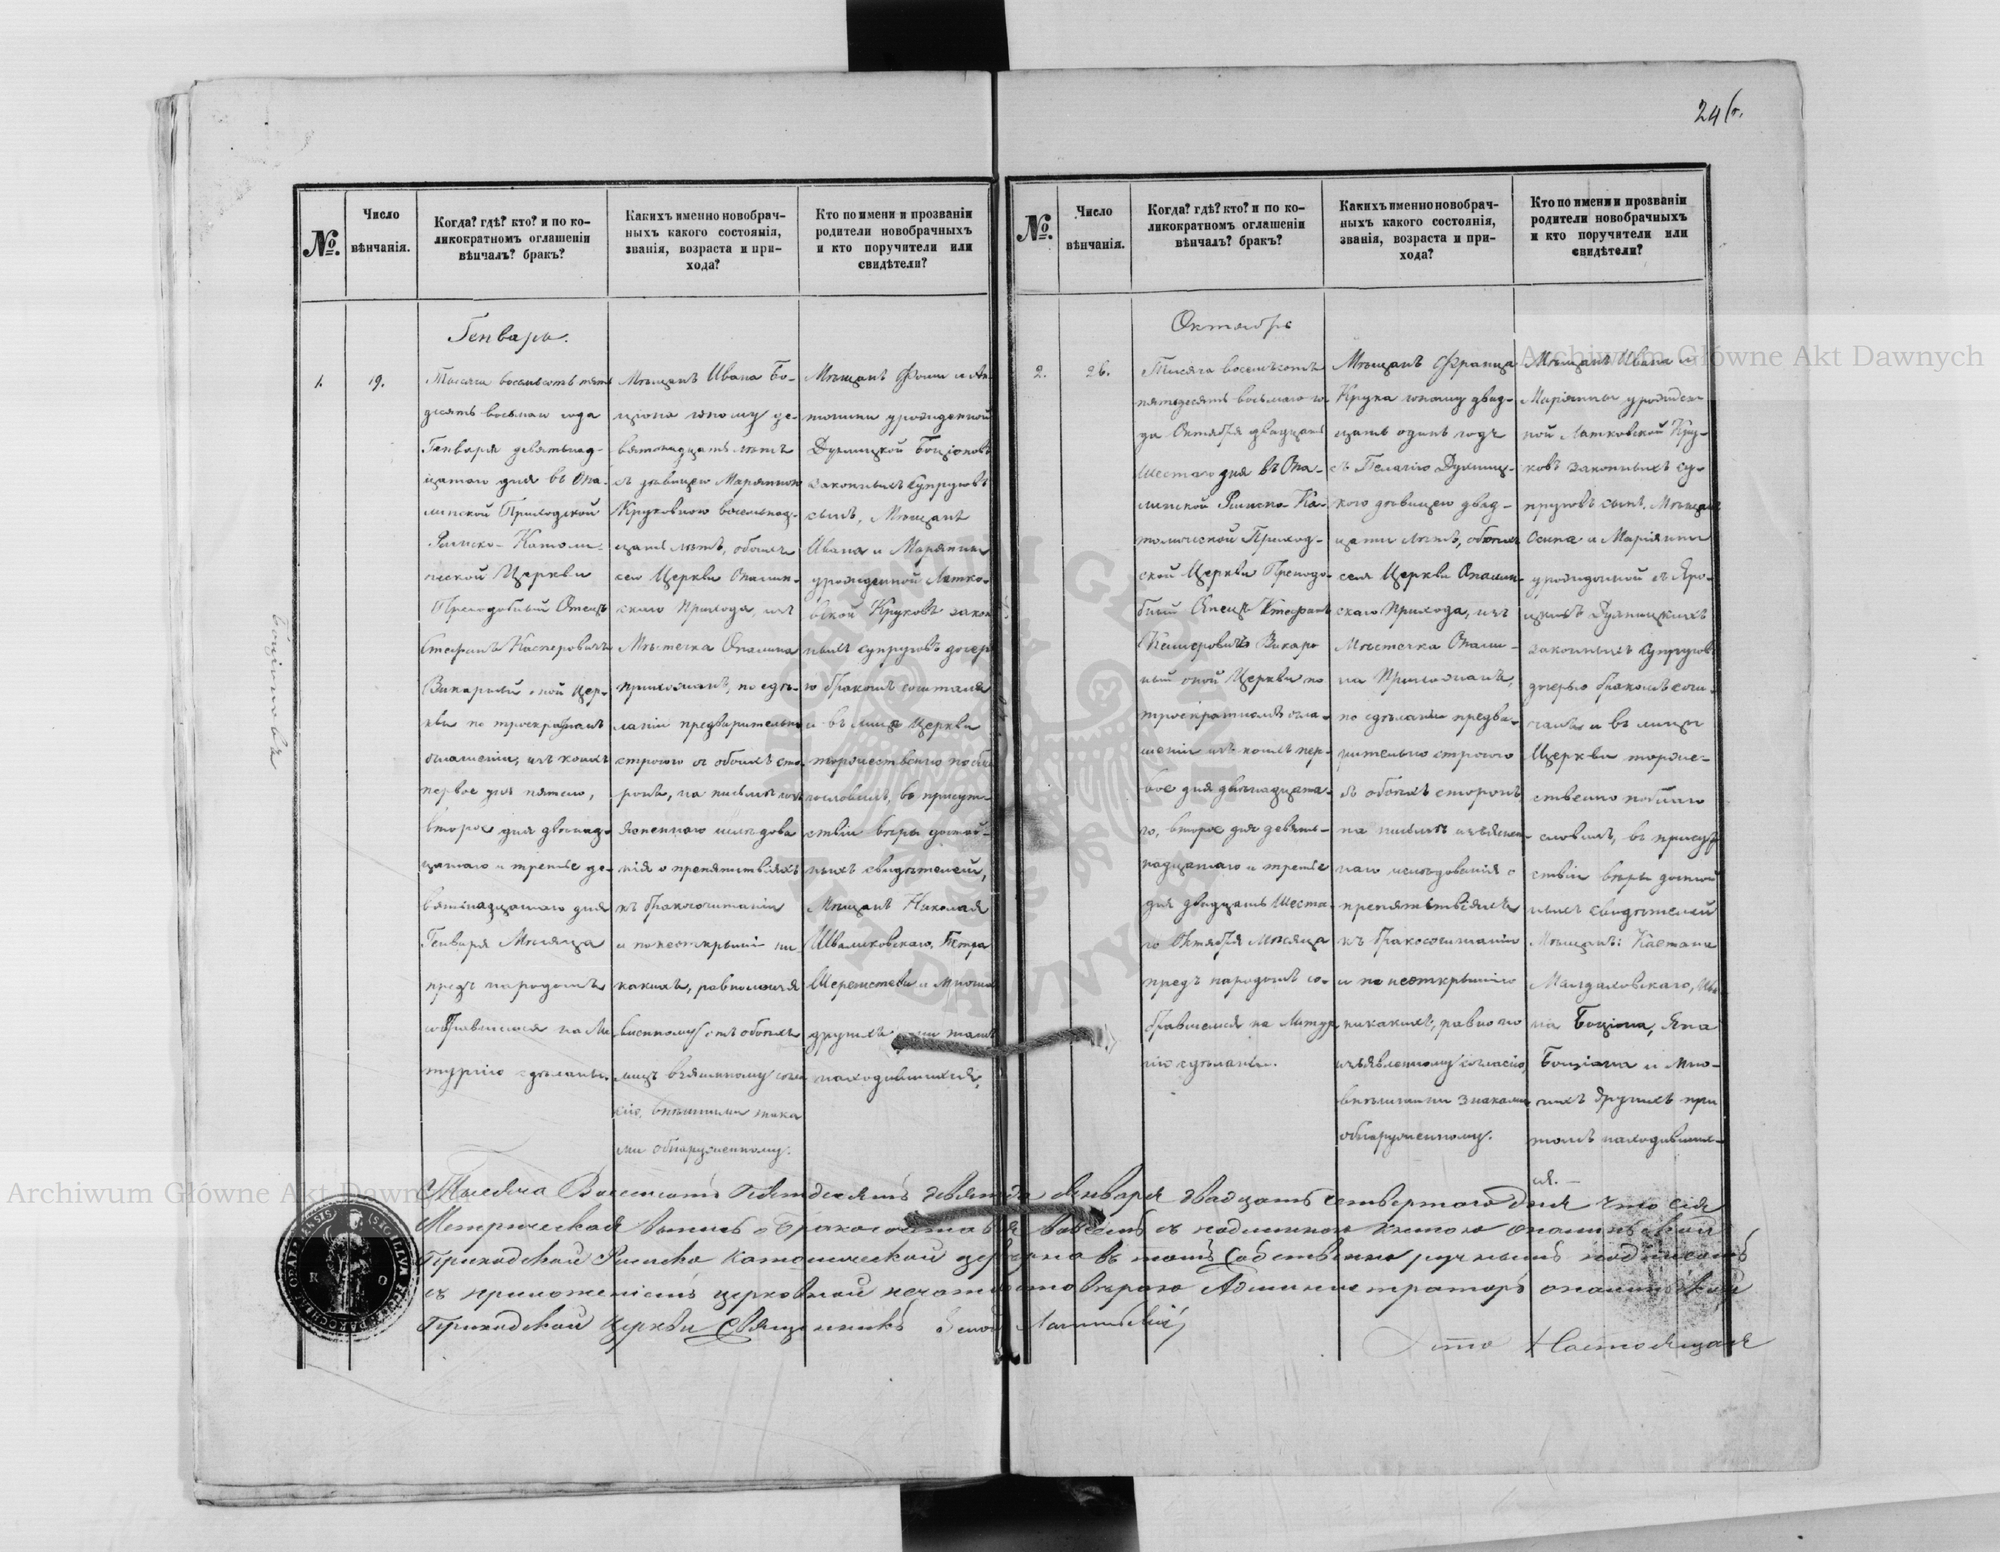 24б.
№.
Число
вѣнчанія.
Когда? гдѣ? кто? и по ко-
ликократномъ оглашеніи
вѣнчалъ? бракъ?
Какихъ именно новобрач-
ныхъ какого состоянія,
званія, возраста и при-
хода?
Кто по имени и прозванію
родители новобрачныхъ
и кто поручители или
свидѣтели?
Генварь.
1.
19.
Тысяча восемьсотъ пять
десятъ восьмаго года
Генваря девятьнад-
цатаго дня въ Опа-
линской Приходской
Римско-Католи-
ческой Церкви
Преподобный Отецъ
Стефанъ Касперовичъ
Викарный оной Цер-
кви по троекратномъ
оглашеніи, изъ коихъ
первое дня пятаго,
второе дня двѣнад-
цатаго и третье де-
вятьнадцатаго дня
Генваря Мѣсяца
предъ народомъ
собравшимся на Ли-
тургію сдѣланы.
Мѣщанъ Ивана Бо-
ціона юному де-
вятьнадцать лѣтъ
съ дѣвицею Маріянною
Круковною восемьнад-
цать лѣтъ, обоихъ
сей Церкви Опалин-
скаго Прихода, изъ
Мѣстечка Опалина
прихожанъ, по сдѣ-
ланіи предварительно
строгаго съ обоихъ сто-
ронъ, на письмѣ изъ
ясненнаго изслѣдова
нія о препятствіяхъ
къ бракосочитанію
и по неоткрытіи ни
какихъ, равно изъя
вленному отъ обоихъ
лицъ взаимному согла
сію, внѣшними знака
ми обнаруженному.
Мѣщанъ Фомы и Ан-
тонины урожденной
Дулницкой Боціоновъ
законныхъ Супруговъ
сынъ, Мѣщанъ
Ивана и Маріянны
урожденной Латко-
вской Круковъ закон
ныхъ супруговъ дочер
ю бракомъ сочиталъ
и въ лицѣ Церкви
торжественно побла
гословилъ, въ присут-
ствіи вѣры достой-
ныхъ свидѣтелей,
Мѣщанъ Николая
Шваликовскаго, Петра
Шереметы и многихъ
другихъ при томъ
находившихся.
Боціоновъ
№.
Число
вѣнчанія.
Когда? гдѣ? кто? и по ко-
ликократномъ оглашеніи
вѣнчалъ? бракъ?
Какихъ именно новобрач-
ныхъ какого состоянія,
званія, возраста и при-
хода?
Кто по имени и прозванію
родители новобрачныхъ
и кто поручители или
свидѣтели?
Октябрь
2.
26.
Тысяча восемьсотъ
пятьдесятъ восьмаго го-
да Октября двадцать
шестаго дня въ Опа-
линской Римско-Ка-
толической Приход-
ской Церкви Преподо-
бный Отецъ Стефанъ
Касперовичъ Викар-
ный оной Церкви по
троекратномъ огла-
шеніи изъ коихъ пер-
вое дня двѣнадцата-
го, второе дня девять-
надцатаго и третье
дня двадцать шеста-
го Октября Мѣсяца
предъ народомъ со-
бравшемся на Литур
гію сдѣланы.
Мѣщанъ Франца
Крука юному двад-
цать одинъ годъ
съ Пелагію Дулниц-
кого дѣвицею двад-
цати лѣтъ, обоихъ
сея Церкви Опалин-
скаго Прихода, изъ
Мѣстечка Опали-
на Прихожанъ,
по сдѣланіи предва-
рительно строгаго
съ обоихъ сторонъ
на письмѣ изъяснен-
наго изслѣдованія о
препятствіяхъ
къ бракосочитанію
и по неоткрытію
никакихъ, равно по
изъявленному согласію,
внѣшними знаками
обнаруженному.
Мѣщанъ Ивана и
Маріянны урожден-
ной Латковской Кру-
ковъ законныхъ су-
пруговъ сынъ, Мѣщанъ
Осипа и Маріянны
урожденной съ Яро-
цкихъ Дулницкихъ
законныхъ Супруговъ
дочерью бракомъ сочи-
талъ и въ лицѣ
Церкви торже-
ственно поблаго
словилъ, въ присут
ствіи вѣры достой
ныхъ свидѣтелей
Мѣщанъ: Каетана
Магдаловскаго, Ива
на Боціона, Яна
Боціона и мно-
гихъ другихъ при
томъ находивших-
ся.—
Тысяча Восемсотъ Пятдесятъ девятаго Января двадцать четвертаго дня что сія
Метрическая выпись о бракосочетавшихся во всемъ съ подлинною книгою Опалинской
Приходской Римско Католической церкви в томъ Собственно ручнымъ подписомъ
съ приложеніемъ церковной печати свѣрою Администраторъ опалинской
Приходской Церкви Священникъ
Что Настоящая